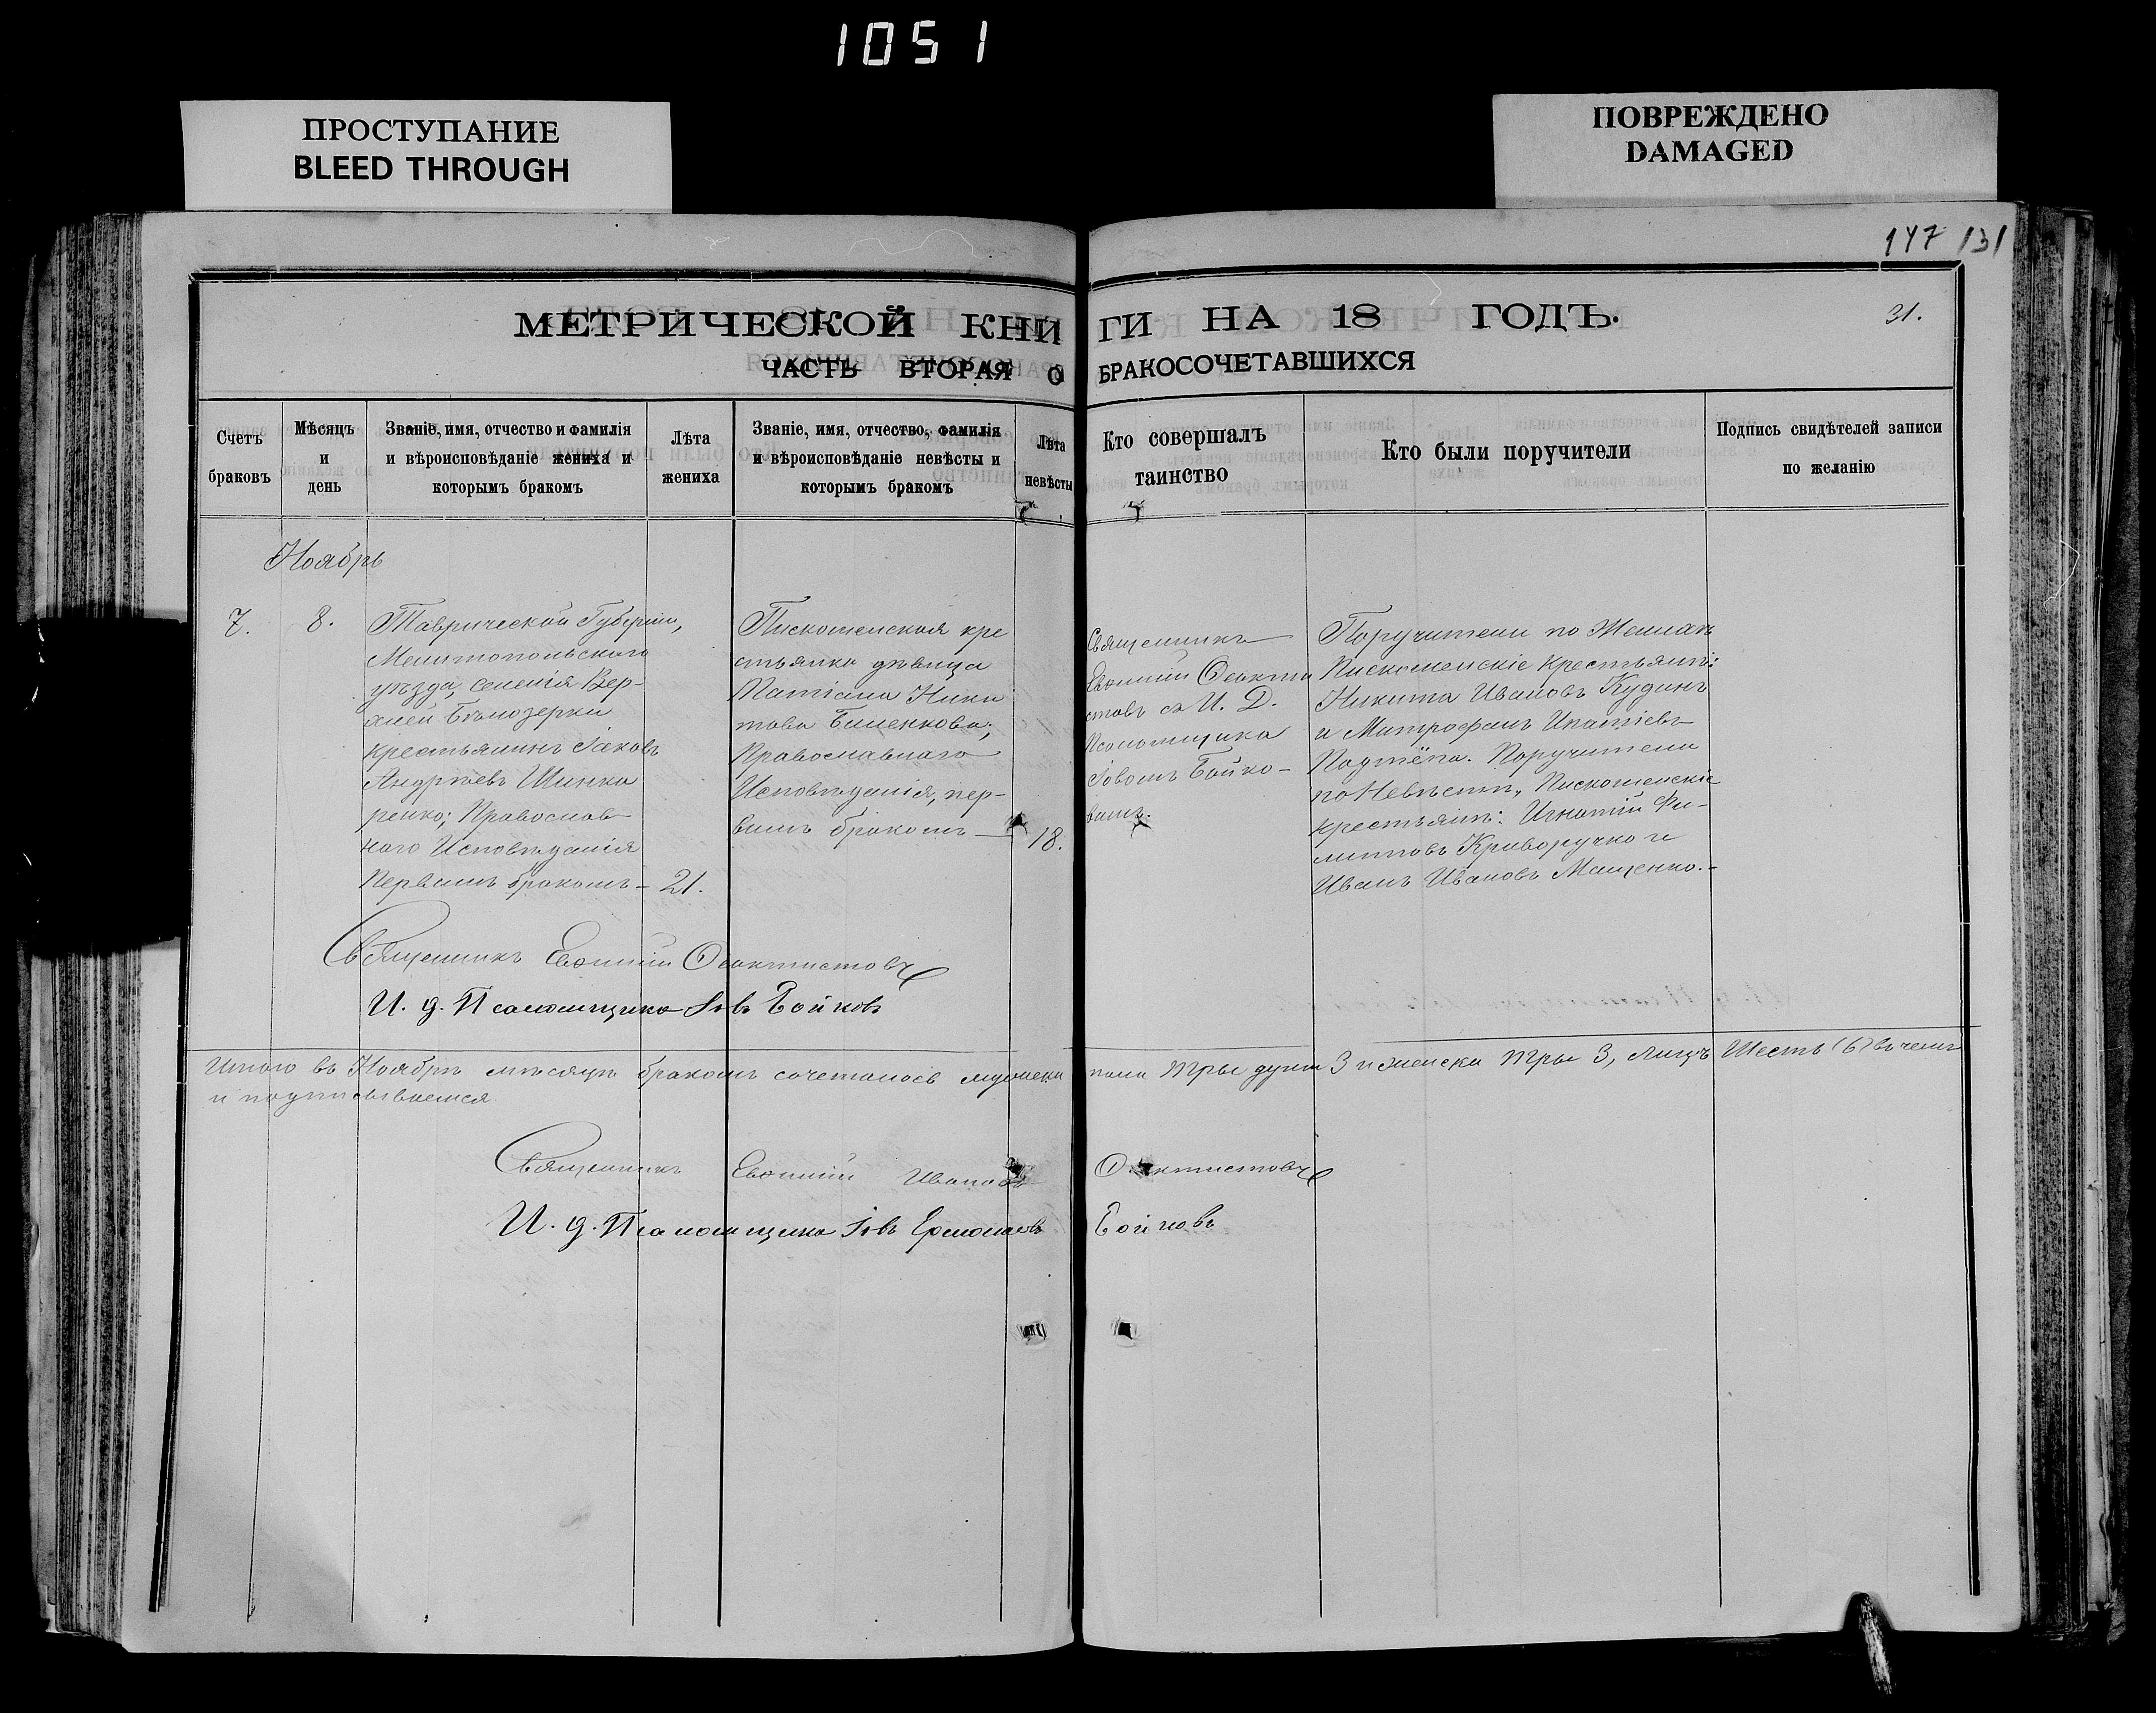 1051
ПРОСТУПАНИЕ
BLEED THROUGH
ПОВРЕЖДЕНО
DAMAGED
147 131
31.
МЕТРИЧЕСКОЙ КНИ ГИ НА 18 ГОДЪ.
ЧАСТЬ ВТОРАЯ О БРАКОСОЧЕТАВШИХСЯ
Счетъ
браковъ
Мѣсяцъ
и
день
Званіе, имя, отчество и фамилія
и вѣроисповѣданіе жениха и
которымъ бракомъ
Лѣта
жениха
Званіе, имя, отчество, фамилія
и вѣроисповѣданіе невѣсты и
которымъ бракомъ
Лѣта
невѣсты
Кто совершалъ
таинство
Кто были поручители
Подпись свидѣтелей записи
по желанію
Ноябрь
7.
8.
Таврической Губерніи,
Мелитопольскаго
уѣзда, селенія Вер-
хней Бѣлозерки
крестьянинъ Іаковъ
Андреевъ Шинка
ренко; Православ
наго Исповѣданія
Первымъ бракомъ –
21.
Пискошенская кре
стьянка дѣвица
Татіана Ники
това Биленкова;
Православнаго
Исповѣданія, пер-
вымъ бракомъ —
18.
Священникъ
Евфимій Феокти
стовъ съ И. Д.
Псаломщика
Іовомъ Бойко-
вымъ.
Поручители по Женихѣ
Пискошенскіе крестьяни:
Никита Ивановъ Кудинъ
и Митрофанъ Ипатіевъ
Поручители
по Невѣстѣ, Пискошенскіе
крестьяни: Игнатій Фи-
липповъ Криворучко и
Иванъ Ивановъ Мащенко.-
Священникъ Евфимій Феоктистовъ
И. д. Псаломщика Іовъ Бойковъ
Итого въ Ноябрѣ мѣсяцѣ бракомъ сочеталось мужеска пола Три души 3 и женска Три 3, Лицъ Шесть (6) въ чемъ
и подписываемся
Священникъ Евфимій Ивановъ Феоктистовъ
И. д. Псаломщика Іовъ Ермолаевъ Бойковъ